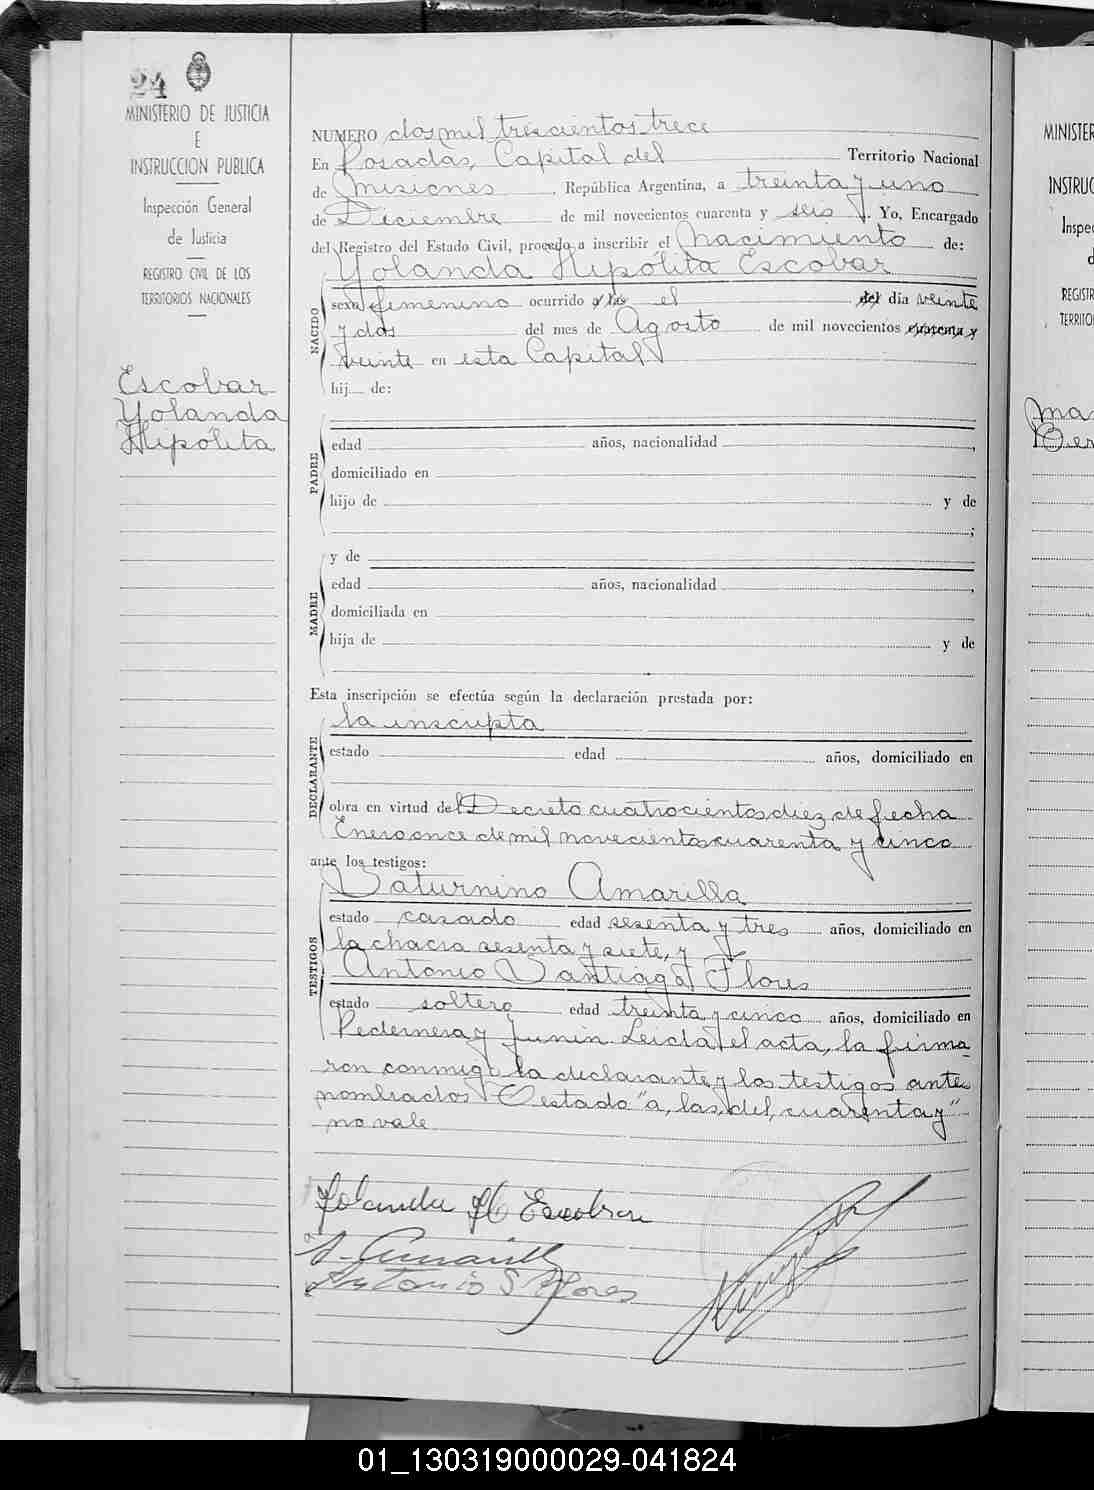 24
MINISTERIO DE JUSTICIA
E
INSTRUCCION PUBLICA
Inspección General
de Justicia
REGISTRO CIVIL DE LOS
TERRITORIOS NACIONALES
Escobar
Yolanda
Hipólita
NUMERO dos mil trescientos trece
En Posadas, Capital del Territorio Nacional
de Misiones, República Argentina, a treinta y uno
de Diciembre de mil novecientos cuarenta y seis. Yo, Encargado
del Registro del Estado Civil, procedo a inscribir el Nacimiento de:
Yolanda Hipólita Escobar
NACIDO
sexo femenino ocurrido a las el del día veinte
y dos del mes de Agosto de mil novecientos cuarenta y
veinte en esta Capital
hij de:
PADRE
edad años, nacionalidad ,
domiciliado en
hijo de y de
;
MADRE
y de
edad años, nacionalidad ,
domiciliada en
hija de y de
Esta inscripción se efectúa según la declaración prestada por:
DECLARANTE
la inscripta
estado edad años, domiciliado en
obra en virtud del Decreto cuatrocientos diez de fecha
Enero once de mil novecientos cuarenta y cinco
ante los testigos:
TESTIGOS
Saturnino Amarilla
estado casado edad sesenta y tres años, domiciliado en
la chacra sesenta y siete, y
Antonio Santiago Flores
estado soltero edad treinta y cinco años, domiciliado en
Pedernera y Junin. Leida el acta, la firma
ron conmigo la declarante y los testigos ante
nombrados. Testado "a, las, del, cuarenta y"
no vale
Yolanda H Escobar
S. Amarilla
Antonio S Flores
MINISTER
INSTRUC
Inspec
d
REGIST
TERRITO
Ma
Ber
01_130319000029-041824